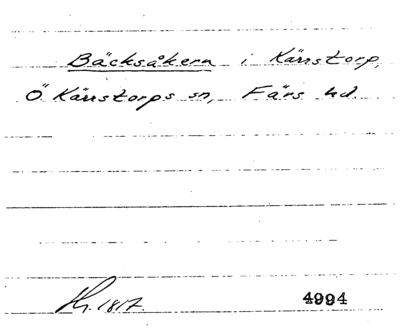 Bäcksåkern i Kärrstorp,
Ö Kärrstorps sn, Färs hd.
Hy. 1817. 4994